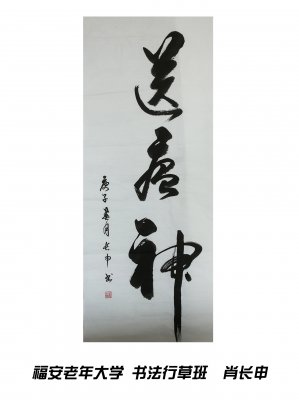 送瘟神
庚子春月长申书
福安老年大学 书法行草班 肖长申